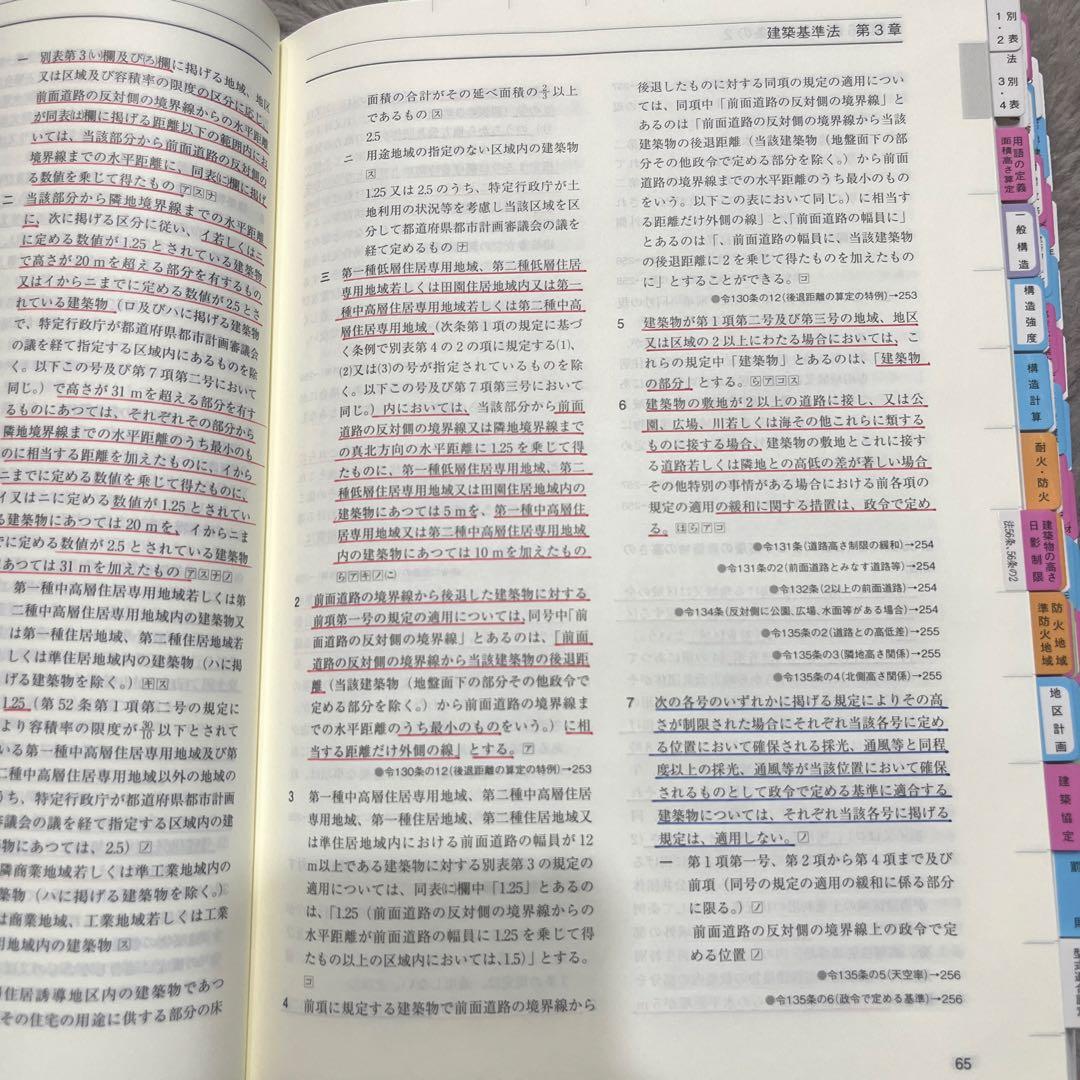 一 別表第3(い)欄及び(ろ)欄に掲げる地域、地区
又は区域及び容積率の限度の区分に応じ、
前面道路の反対側の境界線からの水平距離
が同表(は)欄に掲げる距離以下の範囲内にお
いては、当該部分から前面道路の反対側の
境界線までの水平距離に、同表(に)欄に掲げ
る数値を乗じて得たもの アスナ
二 当該部分から隣地境界線までの水平距離
に、次に掲げる区分に従い、イ若しくはニ
に定める数値が1.25とされている建築物
で高さが20mを超える部分を有するもの
又はイからニまでに定める数値が2.5とさ
れている建築物(ロ及びハに掲げる建築物
で、特定行政庁が都道府県都市計画審議会
の議を経て指定する区域内にあるものを除
く。以下この号及び第7項第二号において
同じ。)で高さが31mを超える部分を有す
るものにあつては、それぞれその部分から
隣地境界線までの水平距離のうち最小のも
のに相当する距離を加えたものに、イから
ニまでに定める数値を乗じて得たものに、
イ又はニに定める数値が1.25とされてい
る建築物にあつては20mを、イからニま
でに定める数値が2.5とされている建築物
にあつては31mを加えたもの アスナノ
第一種中高層住居専用地域若しくは第
二種中高層住居専用地域内の建築物又
は第一種住居地域、第二種住居地域若
しくは準住居地域内の建築物(ハに掲
げる建築物を除く。) キス
1.25(第52条第1項第二号の規定に
より容積率の限度が30/10以下とされて
いる第一種中高層住居専用地域及び第
二種中高層住居専用地域以外の地域の
うち、特定行政庁が都道府県都市計画
審議会の議を経て指定する区域内の建
築物にあつては、2.5) ノ
隣商業地域若しくは準工業地域内の
建築物(ハに掲げる建築物を除く。)又
は商業地域、工業地域若しくは工業
用地域内の建築物 ス
層住居誘導地区内の建築物であつ
その住宅の用途に供する部分の床
建築基準法 第3章
面積の合計がその延べ面積の2/3以上
であるもの ス
2.5
ニ 用途地域の指定のない区域内の建築物
ス
1.25又は2.5のうち、特定行政庁が土
地利用の状況等を考慮し当該区域を区
分して都道府県都市計画審議会の議を
経て定めるもの ナ
三 第一種低層住居専用地域、第二種低層住居
専用地域若しくは田園住居地域内又は第一
種中高層住居専用地域若しくは第二種中高
層住居専用地域(次条第1項の規定に基づ
く条例で別表第4の2の項に規定する(1)、
(2)又は(3)の号が指定されているものを除
く。以下この号及び第7項第三号において
同じ。)内においては、当該部分から前面
道路の反対側の境界線又は隣地境界線まで
の真北方向の水平距離に1.25を乗じて得
たものに、第一種低層住居専用地域、第二
種低層住居専用地域又は田園住居地域内の
建築物にあつては5mを、第一種中高層住
居専用地域又は第二種中高層住居専用地域
内の建築物にあつては10mを加えたもの
らアキノこ
2 前面道路の境界線から後退した建築物に対する
前項第一号の規定の適用については、同号中「前
面道路の反対側の境界線」とあるのは、「前面
道路の反対側の境界線から当該建築物の後退距
離(当該建築物(地盤面下の部分その他政令で
定める部分を除く。)から前面道路の境界線ま
での水平距離のうち最小のものをいう。)に相
当する距離だけ外側の線」とする。 ア
●令130条の12(後退距離の算定の特例)→253
3 第一種中高層住居専用地域、第二種中高層住居
専用地域、第一種住居地域、第二種住居地域
又は準住居地域内における前面道路の幅員が12
m以上である建築物に対する別表第3の規定の
適用については、同表(に)欄中「1.25」とあるの
は、「1.25(前面道路の反対側の境界線からの
水平距離が前面道路の幅員に1.25を乗じて得
たもの以上の区域内においては、1.5)」とする。
コ
4 前項に規定する建築物で前面道路の境界線から
後退したものに対する同項の規定の適用につい
ては、同項中「前面道路の反対側の境界線」と
あるのは「前面道路の反対側の境界線から当該
建築物の後退距離(当該建築物(地盤面下の部
分その他政令で定める部分を除く。)から前面
道路の境界線までの水平距離のうち最小のもの
をいう。以下この表において同じ。)に相当す
る距離だけ外側の線」と、「前面道路の幅員に」
とあるのは「、前面道路の幅員に、当該建築物
の後退距離に2を乗じて得たものを加えたもの
に」とすることができる。 コ
●令130条の12(後退距離の算定の特例)→253
5 建築物が第1項第二号及び第三号の地域、地区
又は区域の2以上にわたる場合においては、こ
れらの規定中「建築物」とあるのは、「建築物
の部分」とする。 らアコス
6 建築物の敷地が2以上の道路に接し、又は公
園、広場、川若しくは海その他これらに類する
ものに接する場合、建築物の敷地とこれに接す
る道路若しくは隣地との高低の差が著しい場合
その他特別の事情がある場合における前各項の
規定の適用の緩和に関する措置は、政令で定め
る。 ほらアコ
●令131条(道路高さ制限の緩和)→254
●令131条の2(前面道路とみなす道路等)→254
●令132条(2以上の前面道路)→254
●令134条(反対側に公園、広場、水面等がある場合)→254
●令135条の2(道路との高低差)→255
●令135条の3(隣地高さ関係)→255
●令135条の4(北側高さ関係)→255
7 次の各号のいずれかに掲げる規定によりその高
さが制限された場合にそれぞれ当該各号に定め
る位置において確保される採光、通風等と同程
度以上の採光、通風等が当該位置において確保
されるものとして政令で定める基準に適合する
建築物については、それぞれ当該各号に掲げる
規定は、適用しない。 ノ
一 第1項第一号、第2項から第4項まで及び
前項(同号の規定の適用の緩和に係る部分
に限る。) ノ
前面道路の反対側の境界線上の政令で定
める位置 ノ
●令135条の5(天空率)→256
●令135条の6(政令で定める基準)→256
65
別表1・2
法別表3・4
用語の定義
面積高さ算定
一般構造
構造強度
構造計算
耐火・防火
建築物の高さ
日影制限
法56条、56条の2
防火地域
準防火地域
地区計画
建築協定